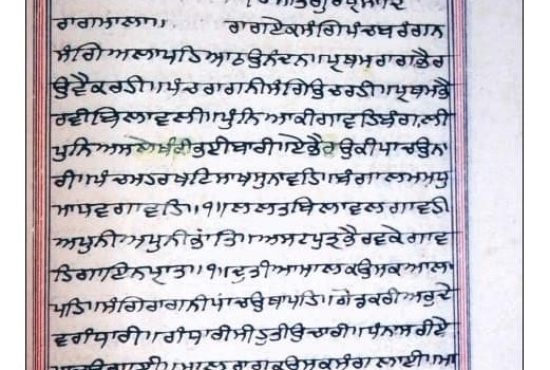 ਰਾਗਮਾਲਾ॥ ਰਾਗਏਕਸੰਗਿਪੰਚਬਰੰਗਨ
ਸੰਗਿਅਲਾਪਹਿਆਠਉਨੰਦਨ॥ਪ੍ਰਥਮਰਾਗਭੈਰ
ਉਵੈਕਰਹੀ॥ਪੰਚਰਾਗਨੀਸੰਗਿਉਚਰਹੀ॥ਪ੍ਰਥਮਭੈ
ਰਵੀਬਿਲਾਵਲੀ॥ਪੁੰਨਿਆਕੀਗਾਵਹਿਬੰਗਲੀ
ਪੁਨਿਅਸਲੇਖੀਕੀਭਈਬਾਰੀ॥ਏਭੈਰਉਕੀਪਾਚਉਨਾ
ਰੀ॥ਪੰਚਮਹਰਖਦਿਸਾਖਸੁਨਾਵਹਿ॥ਬੰਗਾਲਮਮਧੁ
ਮਾਧਵਗਾਵਹਿ॥੧॥ਲਲਤਬਿਲਾਵਲਗਾਵਹੀ
ਅਪੁਨੀਅਪੁਨੀਭਾਂਤਿ॥ਅਸਟਪੁਤ੍ਰਭੈਰਵਕੇਗਾਵ
ਹਿਗਾਇਨਪਾਤ੍ਰ॥੧॥ਦੁਤੀਆਮਾਲਕਉਸਕਆਲਾ
ਪਹਿ॥ਸੰਗਿਰਾਗਨੀਪਾਚਉਥਾਪਹਿ॥ਗੋਂਡਕਰੀਅਰੁਦੇ
ਵਗੰਧਾਰੀ॥ਗੰਧਾਰੀਸੀਹੁਤੀਉਚਾਰੀ॥ਧਨਾਸਰੀਏ
ਪਾਚਉਗਾਈ॥ਮਾਲਰਾਗਕਉਸਕਸੰਗਿਲਾਈ॥ਮਾ